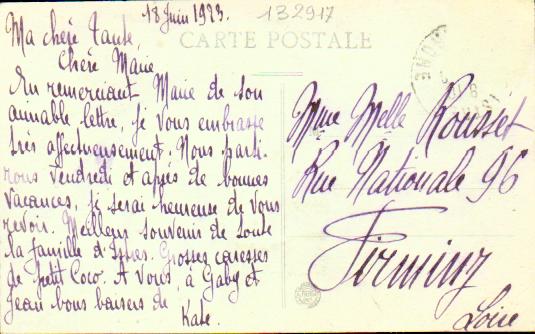 18 Juin 1923.
132917
CARTE POSTALE
Ma chère Tante,
Chère Marie
En remerciant Marie de son
aimable lettre, je vous embrasse
très affectueusement. Nous parti-
rons Vendredi et après de bonnes
vacances, je serai heureuse de vous
revoir. Meilleur souvenir de toute
la famille d'Istres. Grosses caresses
de Petit Coco. A vous, à Gaby et
Jean bons baisers de
Kate.
Mme Melle Rousset
Rue Nationale 96
Firminy
Loire